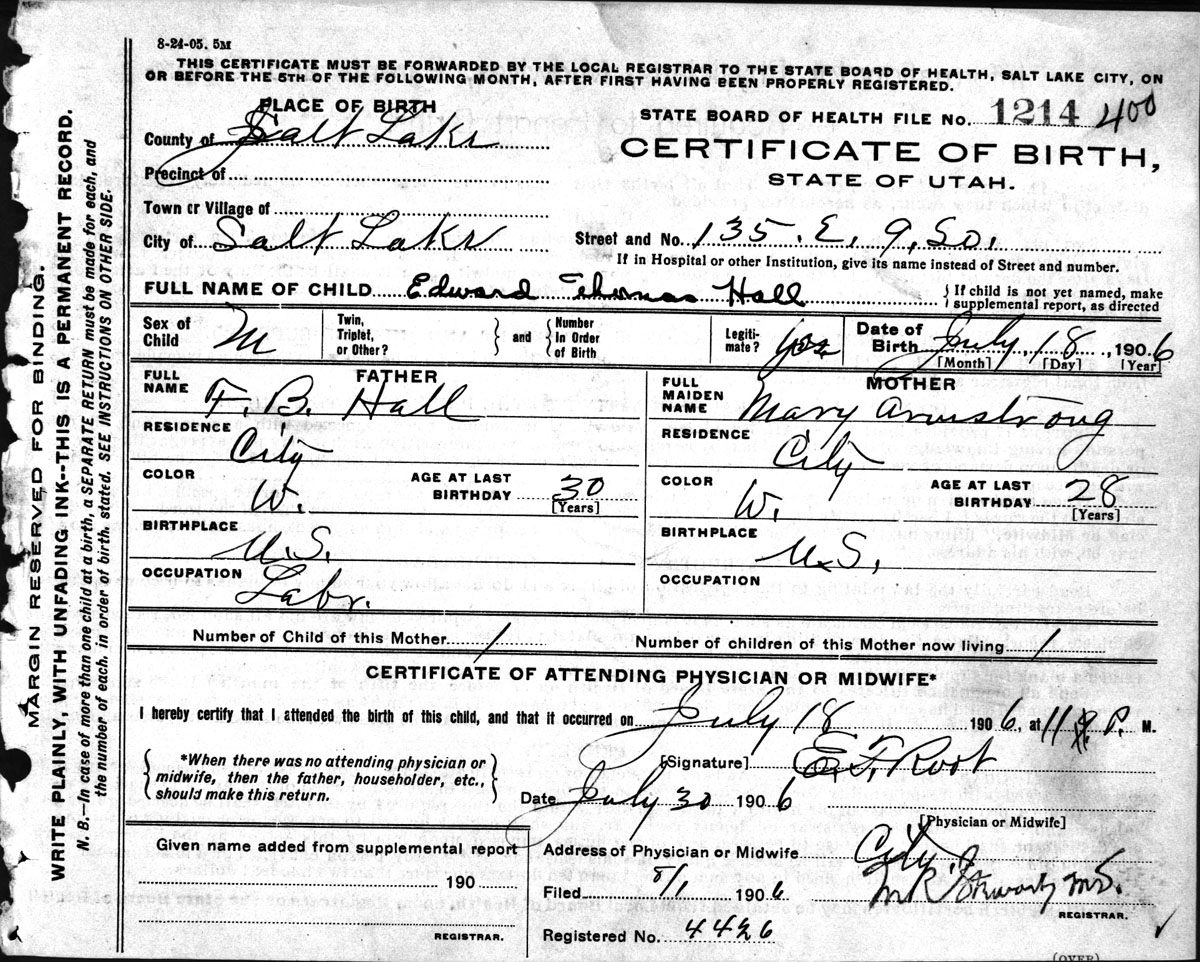 8-24-05. 5M
THIS CERTIFICATE MUST BE FORWARDED BY THE LOCAL REGISTRAR TO THE STATE BOARD OF HEALTH, SALT LAKE CITY, ON
OR BEFORE THE 5TH OF THE FOLLOWING MONTH, AFTER FIRST HAVING BEEN PROPERLY REGISTERED.
PLACE OF BIRTH
County of Salt Lake
Precinct of
Town or Village of
City of Salt Lake
STATE BOARD OF HEALTH FILE NO. 1214 400
CERTIFICATE OF BIRTH,
STATE OF UTAH.
Street and No. 135. E. 9. So.
If in Hospital or other Institution, give its name instead of Street and number.
FULL NAME OF CHILD Edward Thomas Hall
{If child is not yet named, make
supplemental report, as directed
Sex of Child M
Twin, Triplet, or Other? } and { Number In Order of Birth
Legitimate? yes
Date of Birth July 18, 1906
[Month] [Day] [Year]
FATHER
FULL NAME F. B. Hall
RESIDENCE City
COLOR W.
AGE AT LAST BIRTHDAY 30
[Years]
BIRTHPLACE U.S.
OCCUPATION Labr.
MOTHER
FULL MAIDEN NAME Mary Armstrong
RESIDENCE City
COLOR W.
AGE AT LAST BIRTHDAY 28
[Years]
BIRTHPLACE U.S.
OCCUPATION
Number of Child of this Mother 1 Number of children of this Mother now living 1
CERTIFICATE OF ATTENDING PHYSICIAN OR MIDWIFE*
I hereby certify that I attended the birth of this child, and that it occurred on July 18 1906, at 11 P. M.
{*When there was no attending physician or
midwife, then the father, householder, etc.,
should make this return.}
[Signature] E. F. Root
Date July 30 1906
[Physician or Midwife]
Given name added from supplemental report
190
REGISTRAR.
Address of Physician or Midwife City
Filed 8/1 1906 M.R. Stewart M.D.
REGISTRAR.
Registered No. 4426
(OVER)
MARGIN RESERVED FOR BINDING.
WRITE PLAINLY, WITH UNFADING INK--THIS IS A PERMANENT RECORD.
N. B.—In case of more than one child at a birth, a SEPARATE RETURN must be made for each, and
the number of each, in order of birth, stated. SEE INSTRUCTIONS ON OTHER SIDE.